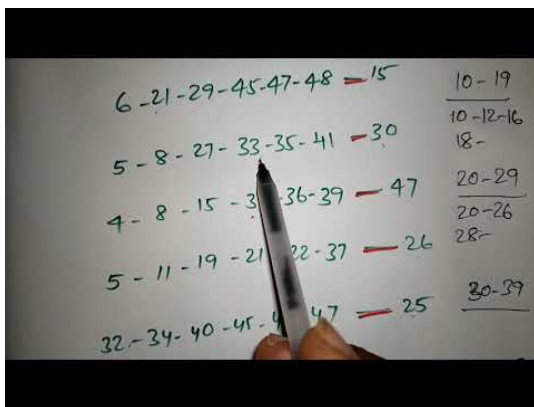 6 -21 -29 -45-47-48 — 15
5 - 8 - 27 - 33 -35 - 41 - 30
4 - 8 - 15 - 3 -36-39 — 47
5 - 11 - 19 - 21 22 - 37 — 26
32 - 34 - 40 - 45 - 47 — 25
10 - 19
10 -12-16
18 -
20 - 29
20 -26
28 -
30-39